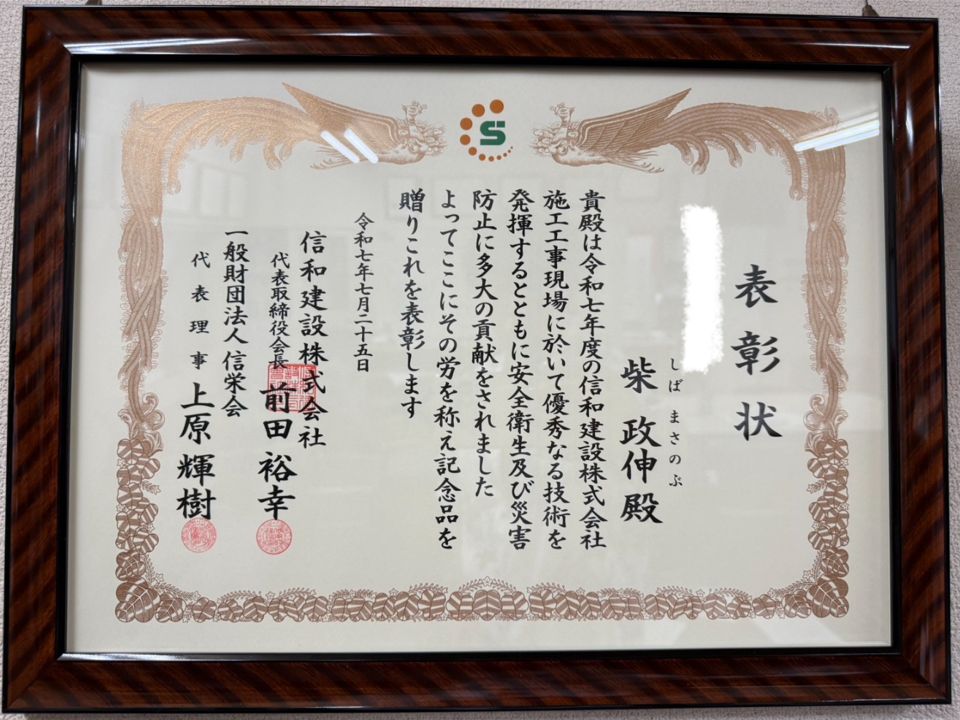 表彰状
しば まさのぶ
柴 政伸 殿
貴殿は令和七年度の信和建設株式会社
施工工事現場に於いて優秀なる技術を
発揮するとともに安全衛生及び災害
防止に多大の貢献をされました
よってここにその労を称え記念品を
贈りこれを表彰します
令和七年七月二十五日
信和建設株式会社
代表取締役会長 前田裕幸
一般財団法人信栄会
代表理事 上原輝樹